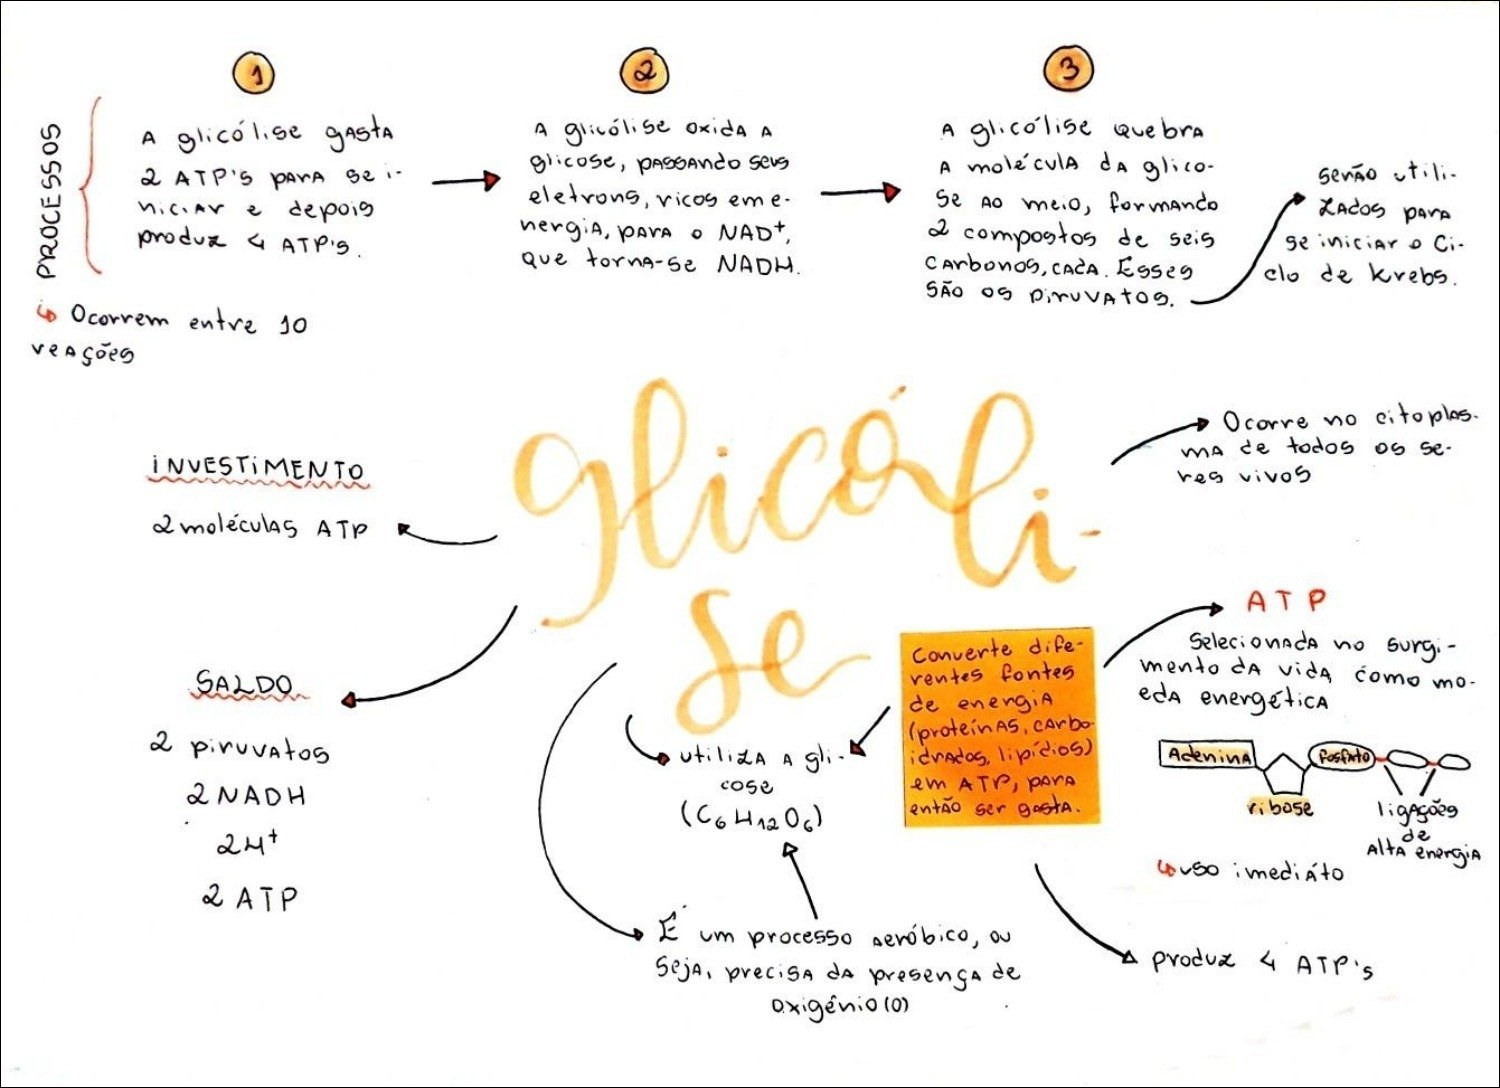 PROCESSOS
1
A glicólise gasta
2 ATP's para se i-
niciar e depois
produz 4 ATP's.
↳ Ocorrem entre 10
reações
2
A glicólise oxida a
glicose, passando seus
eletrons, ricos em e-
nergia, para o NAD⁺,
que torna-se NADH.
3
A glicólise quebra
a molécula da glico-
se ao meio, formando
2 compostos de seis
carbonos, cada. Esses
são os piruvatos.
serão utili-
zados para
se iniciar o Ci-
clo de Krebs.
glicóli-
se
INVESTIMENTO
2 moléculas ATP
SALDO
2 piruvatos
2 NADH
2H⁺
2 ATP
Ocorre no citoplas-
ma de todos os se-
res vivos
Converte dife-
rentes fontes
de energia
(proteínas, carbo
idrados, lipídios)
em ATP, para
então ser gasta.
utiliza a gli-
cose
(C₆H₁₂O₆)
É um processo aeróbico, ou
seja, precisa da presença de
oxigênio (O)
ATP
Selecionada no surgi-
mento da vida como mo-
eda energética
Adenina
fosfato
ribose
ligações
de
alta energia
↳ uso imediáto
produz 4 ATP's